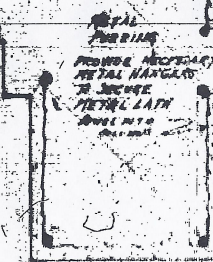 METAL
FURRING
PROVIDE NECESSARY
METAL HANGERS
TO SECURE
METAL LATH